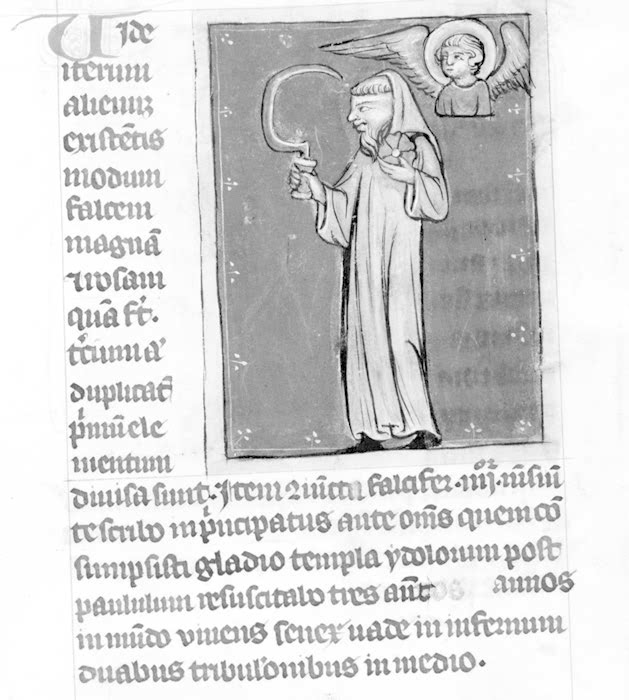 Vide
iterum
alienuz
existētis
modum
falcem
magnā
⁊ rosam
quā fr̄t.
t̓cium a᷒
duplicat̄
p̓mū ele
mentum
diuisa sunt. Item iūcta falcifer .iiijor. mēsiū
te scribo in p̓ncipatus ante om̄s quem cō
sumpsisti gladio templa ydolorum post
paululum resuscitabo tres aūt annos
in mūdo viuens senex uade in infernum
duabus tribul'onibus in medio.